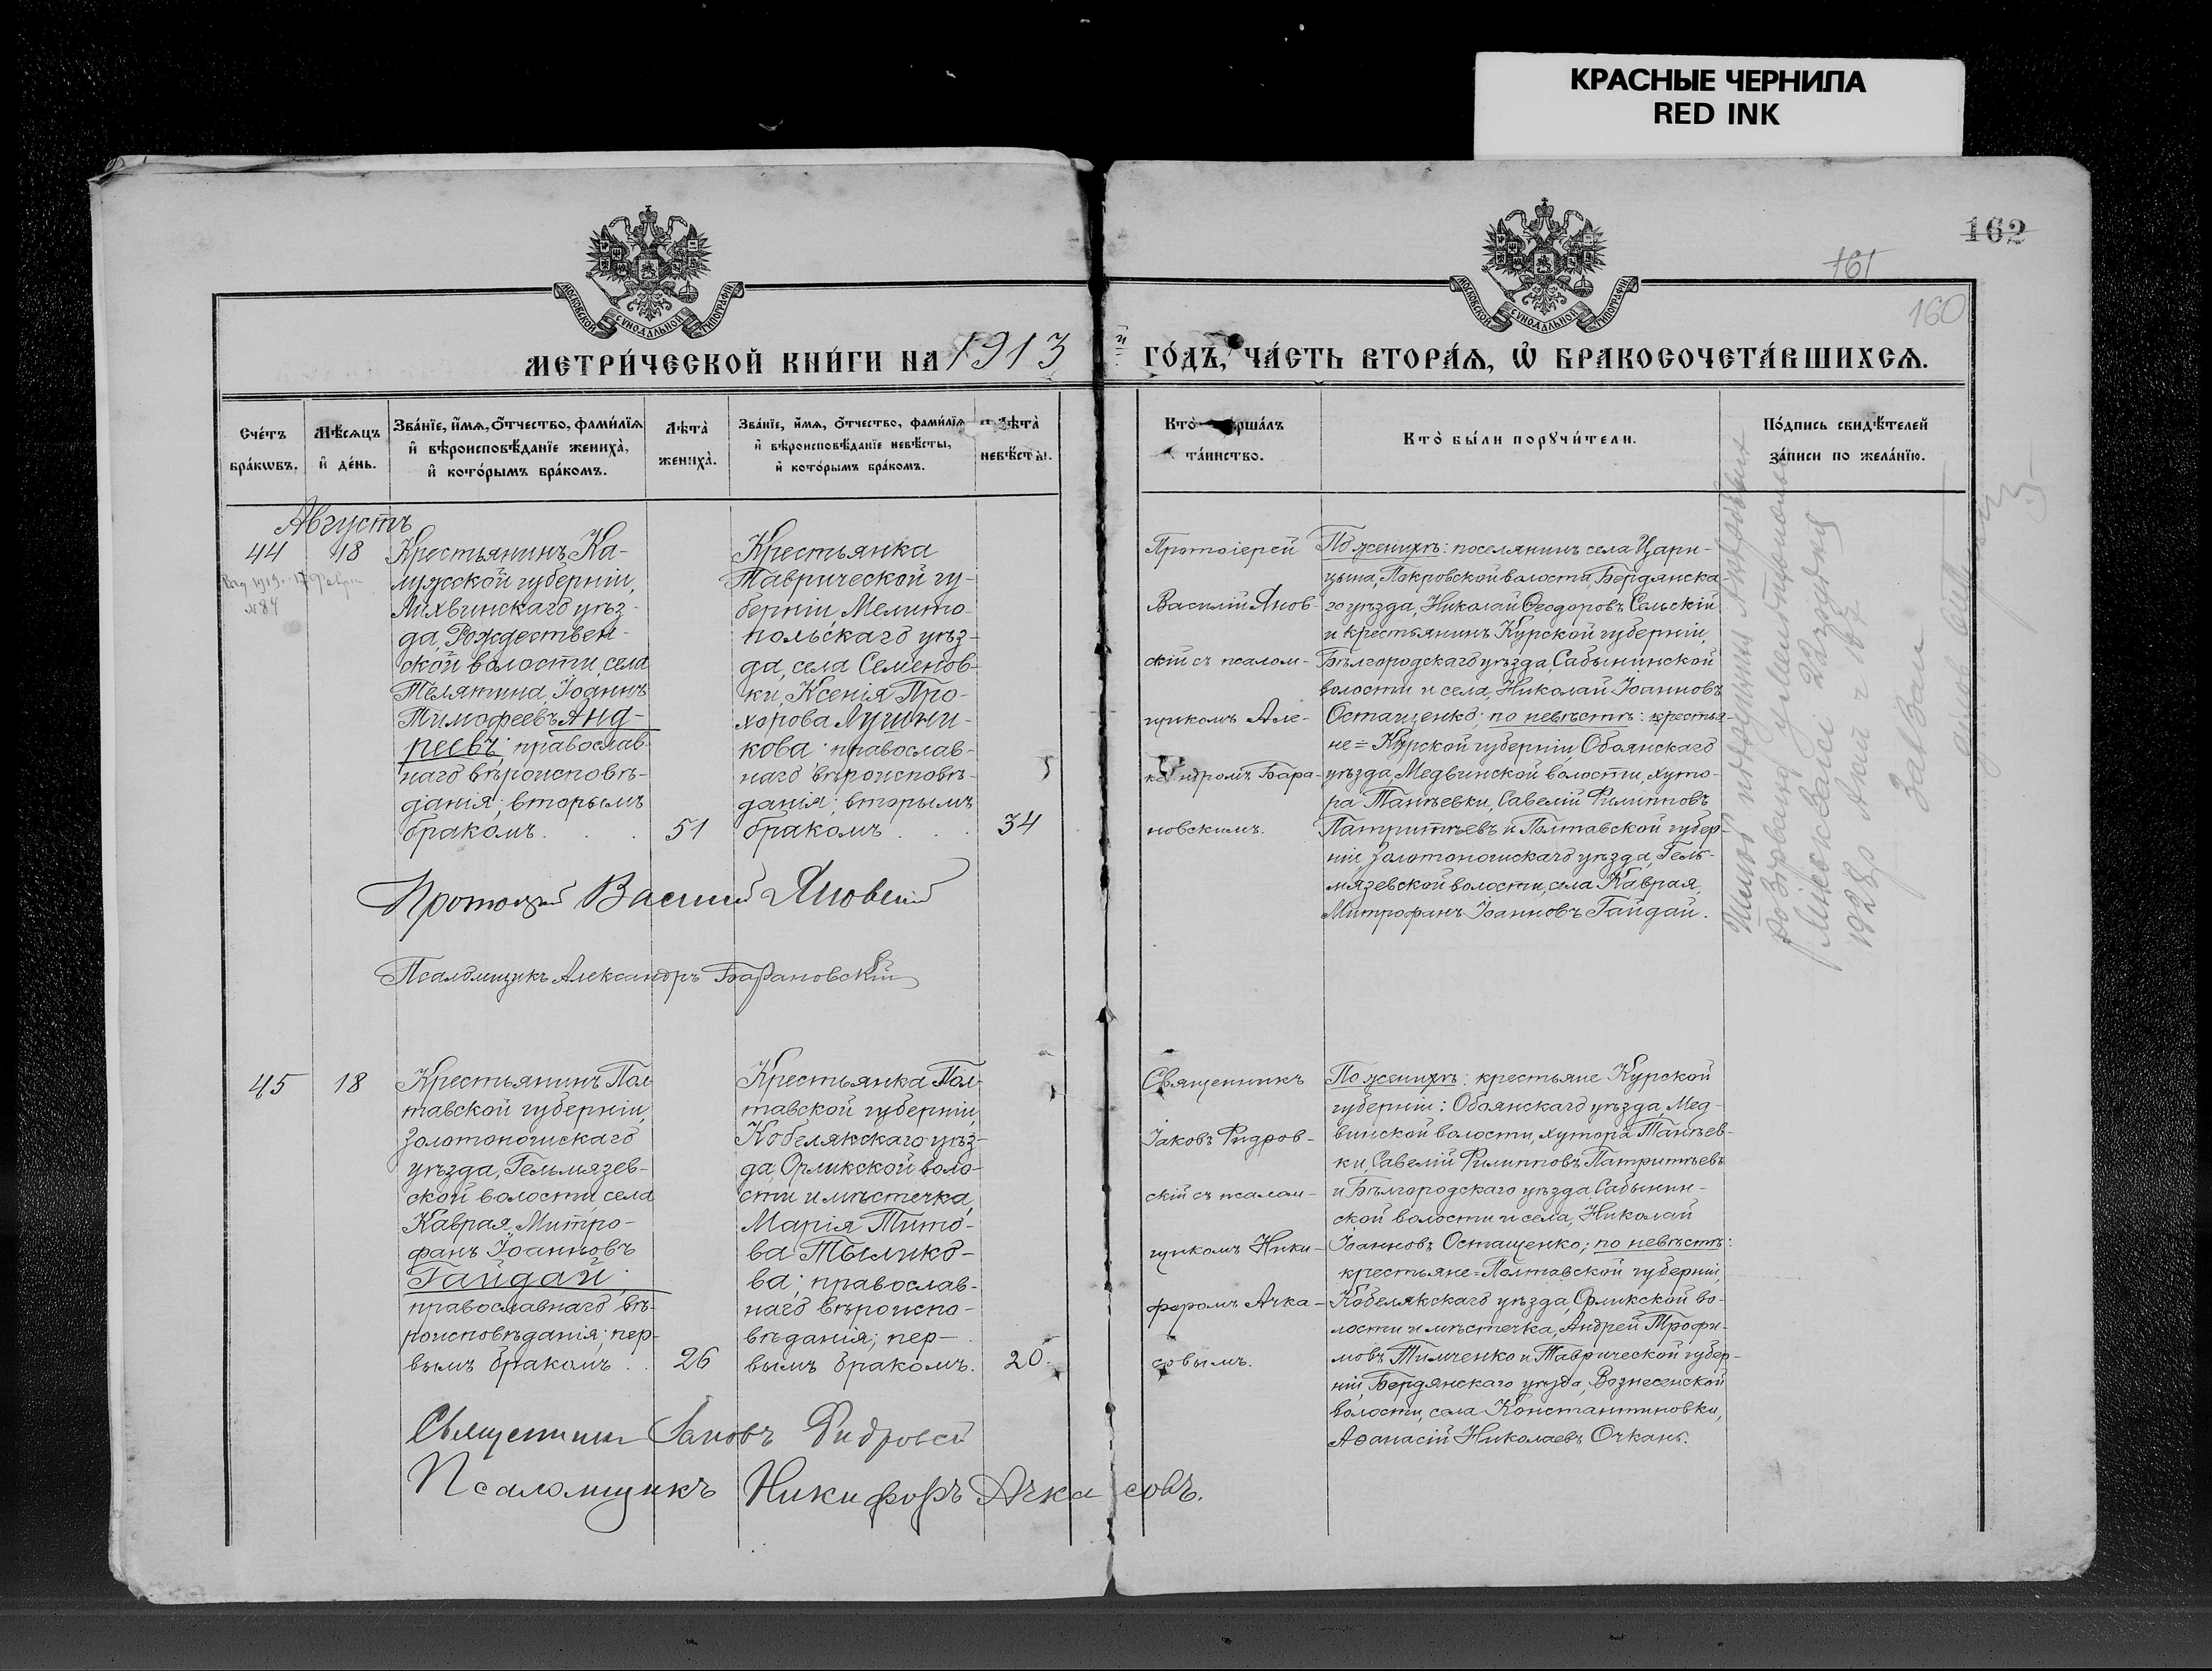 КРАСНЫЕ ЧЕРНИЛА
RED INK
162
161
160
МОСКОВСКОЙ СУНОДАЛЬНОЙ ТИПОГРАФІИ
МОСКОВСКОЙ СУНОДАЛЬНОЙ ТИПОГРАФІИ
МЕТРИ́ЧЕСКОЙ КНИ́ГИ НА 1913
й ГО́ДЪ, ЧА́СТЬ ВТОРА́Ѧ, Ѡ҆ БРАКОСОЧЕТА́ВШИХСѦ.
Счéтъ
брáкѡвъ.
Мѣ́сѧцъ
и҆ дéнь.
Звáнїе, и҆́мѧ, ѻ҆́тчество, фамѝлїѧ
и҆ вѣроисповѣ́данїе женихà,
и҆ котóрымъ брáкомъ.
Лѣтà
женихà.
Звáнїе, и҆́мѧ, ѻ҆́тчество, фамѝлїѧ
и҆ вѣроисповѣ́данїе невѣ́сты,
и҆ котóрымъ брáкомъ.
Лѣтà
невѣ́сты.
Ктò
ршáлъ
тáинство.
Ктò бы́ли порꙋчи́тели.
Пóдпись свидѣ́телей
зáписи по желáнїю.
Августъ
44
18
№84
Крестьянинъ Ка-
лужской губерніи,
Лихвинскаго уѣз-
да, Рождествен-
ской волости, села
Телятина, Іоаннъ
Тимофеевъ Анд-
реевъ; православ-
наго вѣроисповѣ-
данія; вторымъ
бракомъ. . .
51
Крестьянка
Таврической гу-
берніи Мелито-
польскаго уѣз-
да, села Семенов-
ки, Ксенія Про-
хорова Лушни-
кова; православ-
наго вѣроисповѣ-
данія; вторымъ
бракомъ . . .
34
Протоіерей
Василій Янов-
скій съ псалом-
щикомъ Але-
ндромъ Бара-
новскимъ.
По женихѣ: поселянинъ села Цари-
цына, Покровской волости, Бердянска-
го уѣзда, Николай Ѳеодоровъ Сельскій
и крестьянинъ Курской губерніи,
Бѣлгородскаго уѣзда, Сабынинской
волости и села, Николай Іоанновъ
Остащенко; по невѣстѣ: крестья-
не = Курской губерніи, Обоянскаго
уѣзда, Медвинской волости, хуто-
ра Танѣевки, Савелій Филипповъ
Патритѣевъ и Полтавской губер-
ніи Золотоношскаго уѣзда, Гель-
мязевской волости, села Каврая,
Митрофанъ Іоанновъ Гайдай.
Протоіерей Василій Яновскій
Псаломщикъ Александръ Барановскій
1928р
45
18
Крестьянинъ Пол-
тавской губерніи,
Золотоношскаго
уѣзда, Гельмязев-
ской волости, села
Каврая, Митро-
фанъ Іоанновъ
Гайдай;
православнаго вѣ-
роисповѣданія; пер-
вымъ бракомъ . .
26
Крестьянка Пол-
тавской губерніи,
Кобелякскаго уѣз-
да, Орликской воло-
сти и мѣстечка,
Марія Тито-
ва Тылико-
ва; православ-
наго вѣроиспо-
вѣданія; пер-
вымъ бракомъ.
20.
Священникъ
Іаковъ Фидров-
скій съ псалом-
щикомъ Ники-
форомъ Ачка-
совымъ.
По женихѣ: крестьяне Курской
губерніи: Обоянскаго уѣзда, Мед-
винской волости, хутора Танѣев-
ки, Савелій Филипповъ Патритѣевъ
и Бѣлгородскаго уѣзда, Сабынин-
ской волости и села, Николай
Іоанновъ Остащенко; по невѣстѣ:
крестьяне = Полтавской губерніи,
Кобелякскаго уѣзда, Орликской во-
лости и мѣстечка, Андрей Трофи-
мовъ Тимченко и Таврической губер-
ніи, Бердянскаго уѣзда, Вознесенской
волости, села Константиновки,
Аѳанасій Николаевъ Очкань.
Священникъ Іаковъ Фидровскій
Псаломщикъ Никифоръ Ачкасовъ.